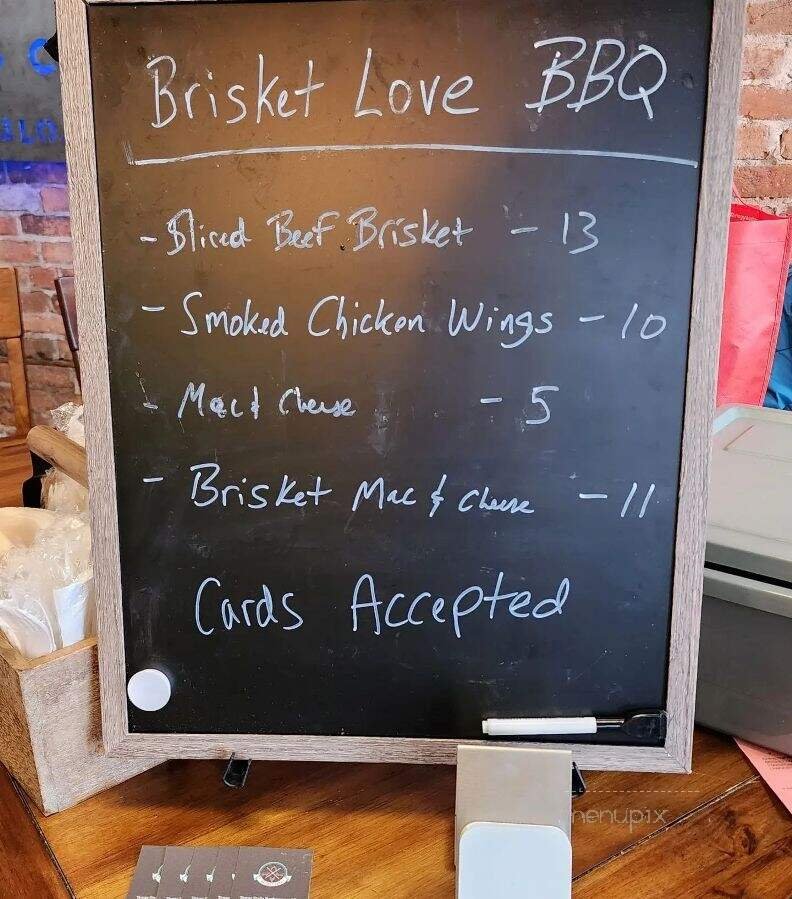 Brisket Love BBQ
- Sliced Beef Brisket - 13
- Smoked Chicken Wings - 10
- Mac & Cheese - 5
- Brisket Mac & Cheese - 11
Cards Accepted
menupix